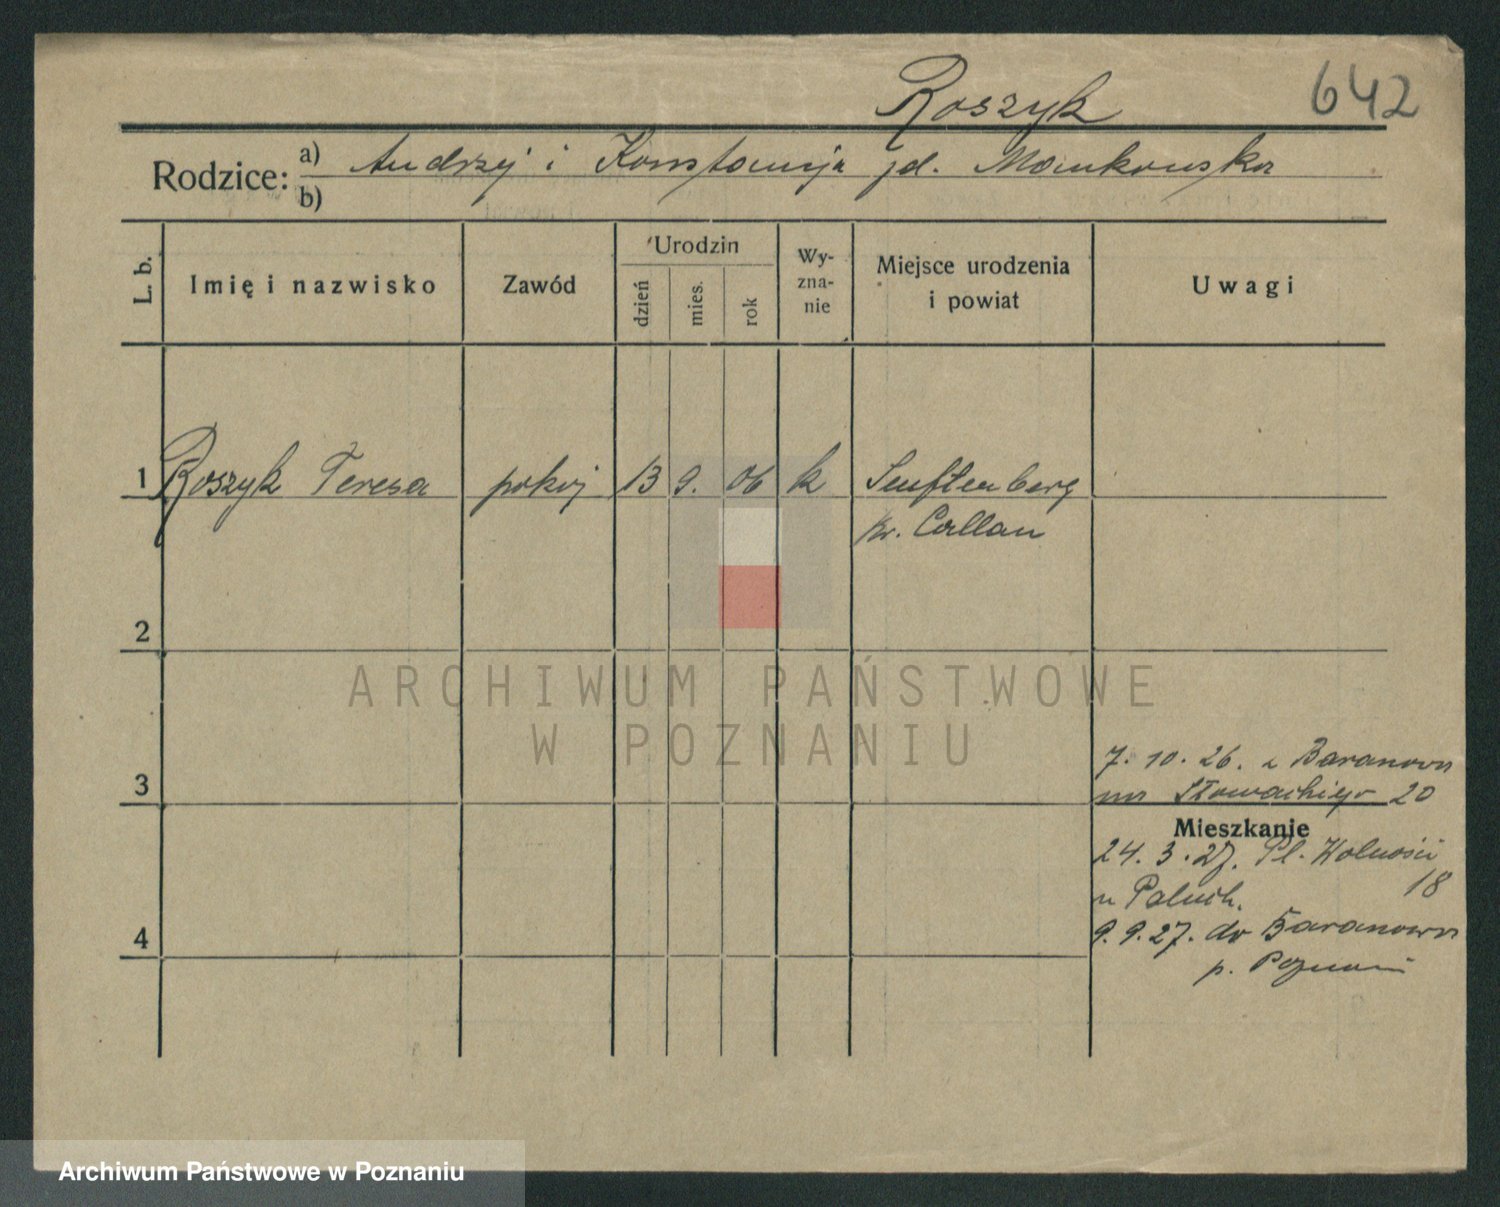 Roszyk 642
Rodzice: a) Andrzej i Konstancja zd. Mankowska
b)
L. b. Imię i nazwisko Zawód Urodzin dzień mies. rok Wyznanie Miejsce urodzenia i powiat Uwagi
1 Roszyk Teresa pokoj 13 9. 06 k Senftenberg
kr. Callau
2
ARCHIWUM PAŃSTWOWE
W POZNANIU
7. 10. 26. z Baranowa
3 na Słowackiego 20
Mieszkanie
24. 3. 27. Pl. Wolności
18
u Paluch.
4 9. 9. 27. do Baranowa
p. Poznań
Archiwum Państwowe w Poznaniu